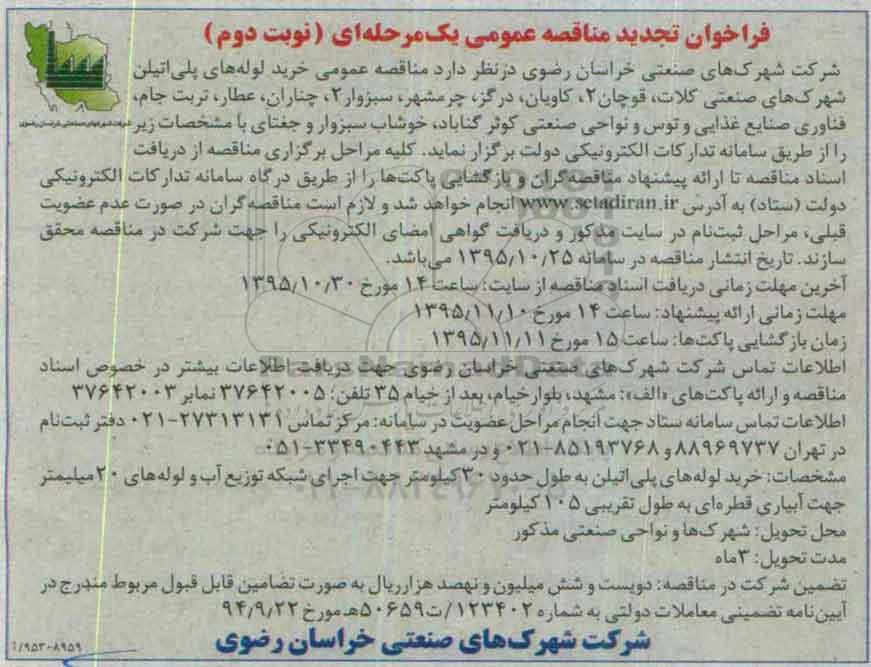 فراخوان تجدید مناقصه عمومی یک‌مرحله‌ای (نوبت دوم)
شرکت شهرک‌های صنعتی خراسان رضوی درنظر دارد مناقصه عمومی خرید لوله‌های پلی‌اتیلن
شهرک‌های صنعتی کلات، قوچان۲، کاویان، درگز، چرمشهر، سبزوار۲، چناران، عطار، تربت جام،
فناوری صنایع غذایی و توس و نواحی صنعتی کوثر گناباد، خوشاب سبزوار و جغتای با مشخصات زیر
شرکت شهرکهای صنعتی خراسان رضوی
را از طریق سامانه تدارکات الکترونیکی دولت برگزار نماید. کلیه مراحل برگزاری مناقصه از دریافت
اسناد مناقصه تا ارائه پیشنهاد مناقصه‌گران و بازگشایی پاکت‌ها را از طریق درگاه سامانه تدارکات الکترونیکی
دولت (ستاد) به آدرس www.setadiran.ir انجام خواهد شد و لازم است مناقصه‌گران در صورت عدم عضویت
قبلی، مراحل ثبت‌نام در سایت مذکور و دریافت گواهی امضای الکترونیکی را جهت شرکت در مناقصه محقق
سازند. تاریخ انتشار مناقصه در سامانه ۱۳۹۵/۱۰/۲۵ می‌باشد.
آخرین مهلت زمانی دریافت اسناد مناقصه از سایت: ساعت ۱۴ مورخ ۱۳۹۵/۱۰/۳۰
مهلت زمانی ارائه پیشنهاد: ساعت ۱۴ مورخ ۱۳۹۵/۱۱/۱۰
زمان بازگشایی پاکت‌ها: ساعت ۱۵ مورخ ۱۳۹۵/۱۱/۱۱
اطلاعات تماس شرکت شهرک‌های صنعتی خراسان رضوی جهت دریافت اطلاعات بیشتر در خصوص اسناد
مناقصه و ارائه پاکت‌های «الف»: مشهد، بلوار خیام، بعد از خیام ۳۵ تلفن: ۳۷۶۴۲۰۰۵ نمابر ۳۷۶۴۲۰۰۳
اطلاعات تماس سامانه ستاد جهت انجام مراحل عضویت در سامانه: مرکز تماس ۲۷۳۱۳۱۳۱-۰۲۱ دفتر ثبت‌نام
در تهران ۸۸۹۶۹۷۳۷ و ۸۵۱۹۳۷۶۸-۰۲۱ و در مشهد ۳۳۴۹۰۴۴۳-۰۵۱
مشخصات: خرید لوله‌های پلی‌اتیلن به طول حدود ۳۰ کیلومتر جهت اجرای شبکه توزیع آب و لوله‌های ۲۰ میلیمتر
جهت آبیاری قطره‌ای به طول تقریبی ۱۰۵ کیلومتر
محل تحویل: شهرک‌ها و نواحی صنعتی مذکور
مدت تحویل: ۳ماه
تضمین شرکت در مناقصه: دویست و شش میلیون و نهصد هزارریال به صورت تضامین قابل قبول مربوط مندرج در
آیین‌نامه تضمینی معاملات دولتی به شماره ۱۲۳۴۰۲/ت۵۰۶۵۹هـ مورخ ۹۴/۹/۲۲
شرکت شهرک‌های صنعتی خراسان رضوی
۹۵۳۰۸۹۵۹/ا